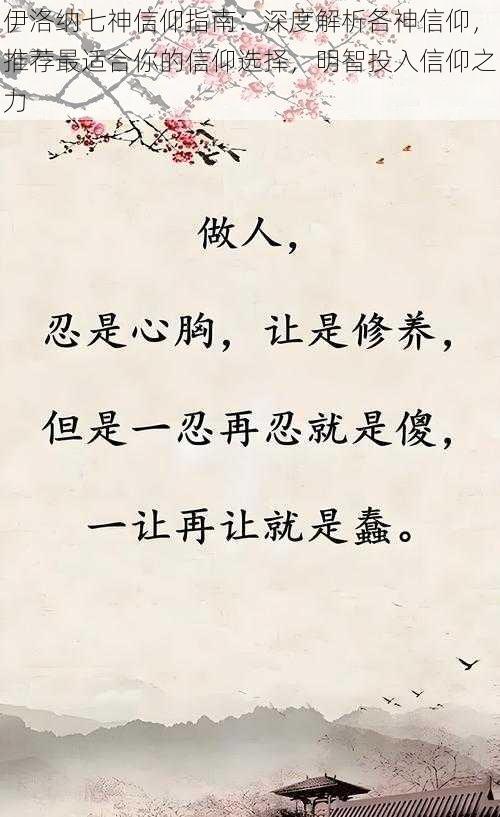 伊洛纳七神信仰指南：深度解析各神信仰，
推荐最适合你的信仰选择，明智投入信仰之
力
做人，
忍是心胸，让是修养，
但是一忍再忍就是傻，
一让再让就是蠢。